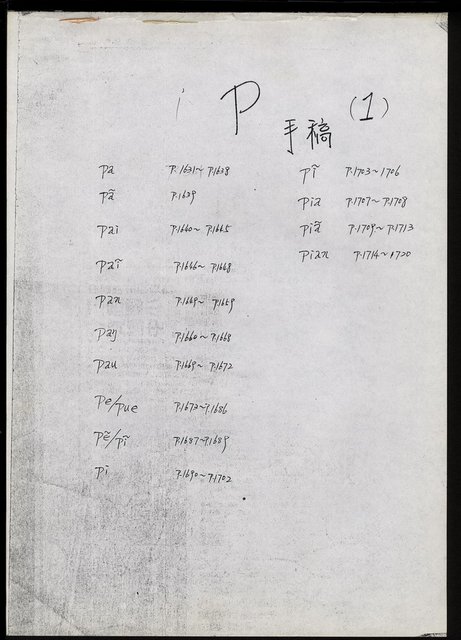 P (1)
手稿
pa P.1631~P.1638
pã P.1639
pai P.1640~P.1645
paĩ P.1646~P.1648
pan P.1649~P.1659
paŋ P.1660~P.1668
pau P.1669~P.1672
pe/pue P.1673~P.1686
pẽ/pĩ P.1687~P.1689
pi P.1690~P.1702
pĩ P.1703~1706
pia P.1707~P.1708
piã P.1709~P.1713
pian P.1714~1720